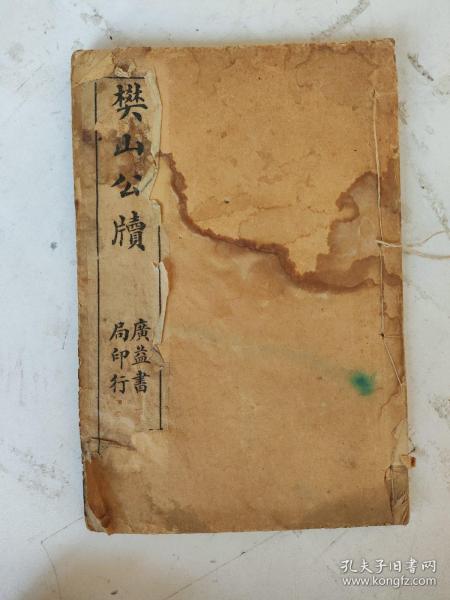 樊山公牘
廣益書
局印行
孔夫子旧书网
www.kongfz.com